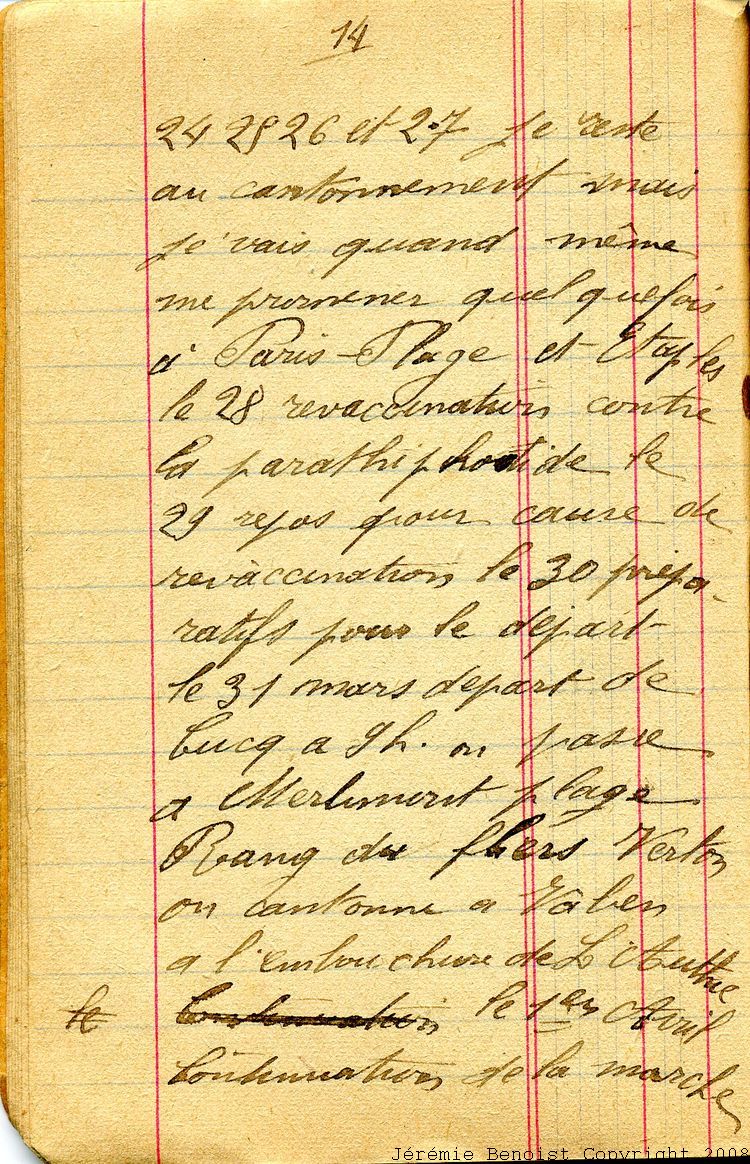 14
24 25 26 et 27 je reste
au cantonnement mais
je vais quand même
me promener quelquefois
à Paris-Plage et Etaples
le 28 revaccination contre
la parathiphoïtide le
29 repos pour cause de
revaccination le 30 prépa-
ratifs pour le départ
le 31 mars depart de
Cucq a 9h. on passe
a Merlimont plage
Rang du fliers Verton
on cantonne a Vaben
a l'embouchure de L'Authie
le Continuation le 1er Avril
Continuation de la marche
Jérémie Benoist Copyright 2008